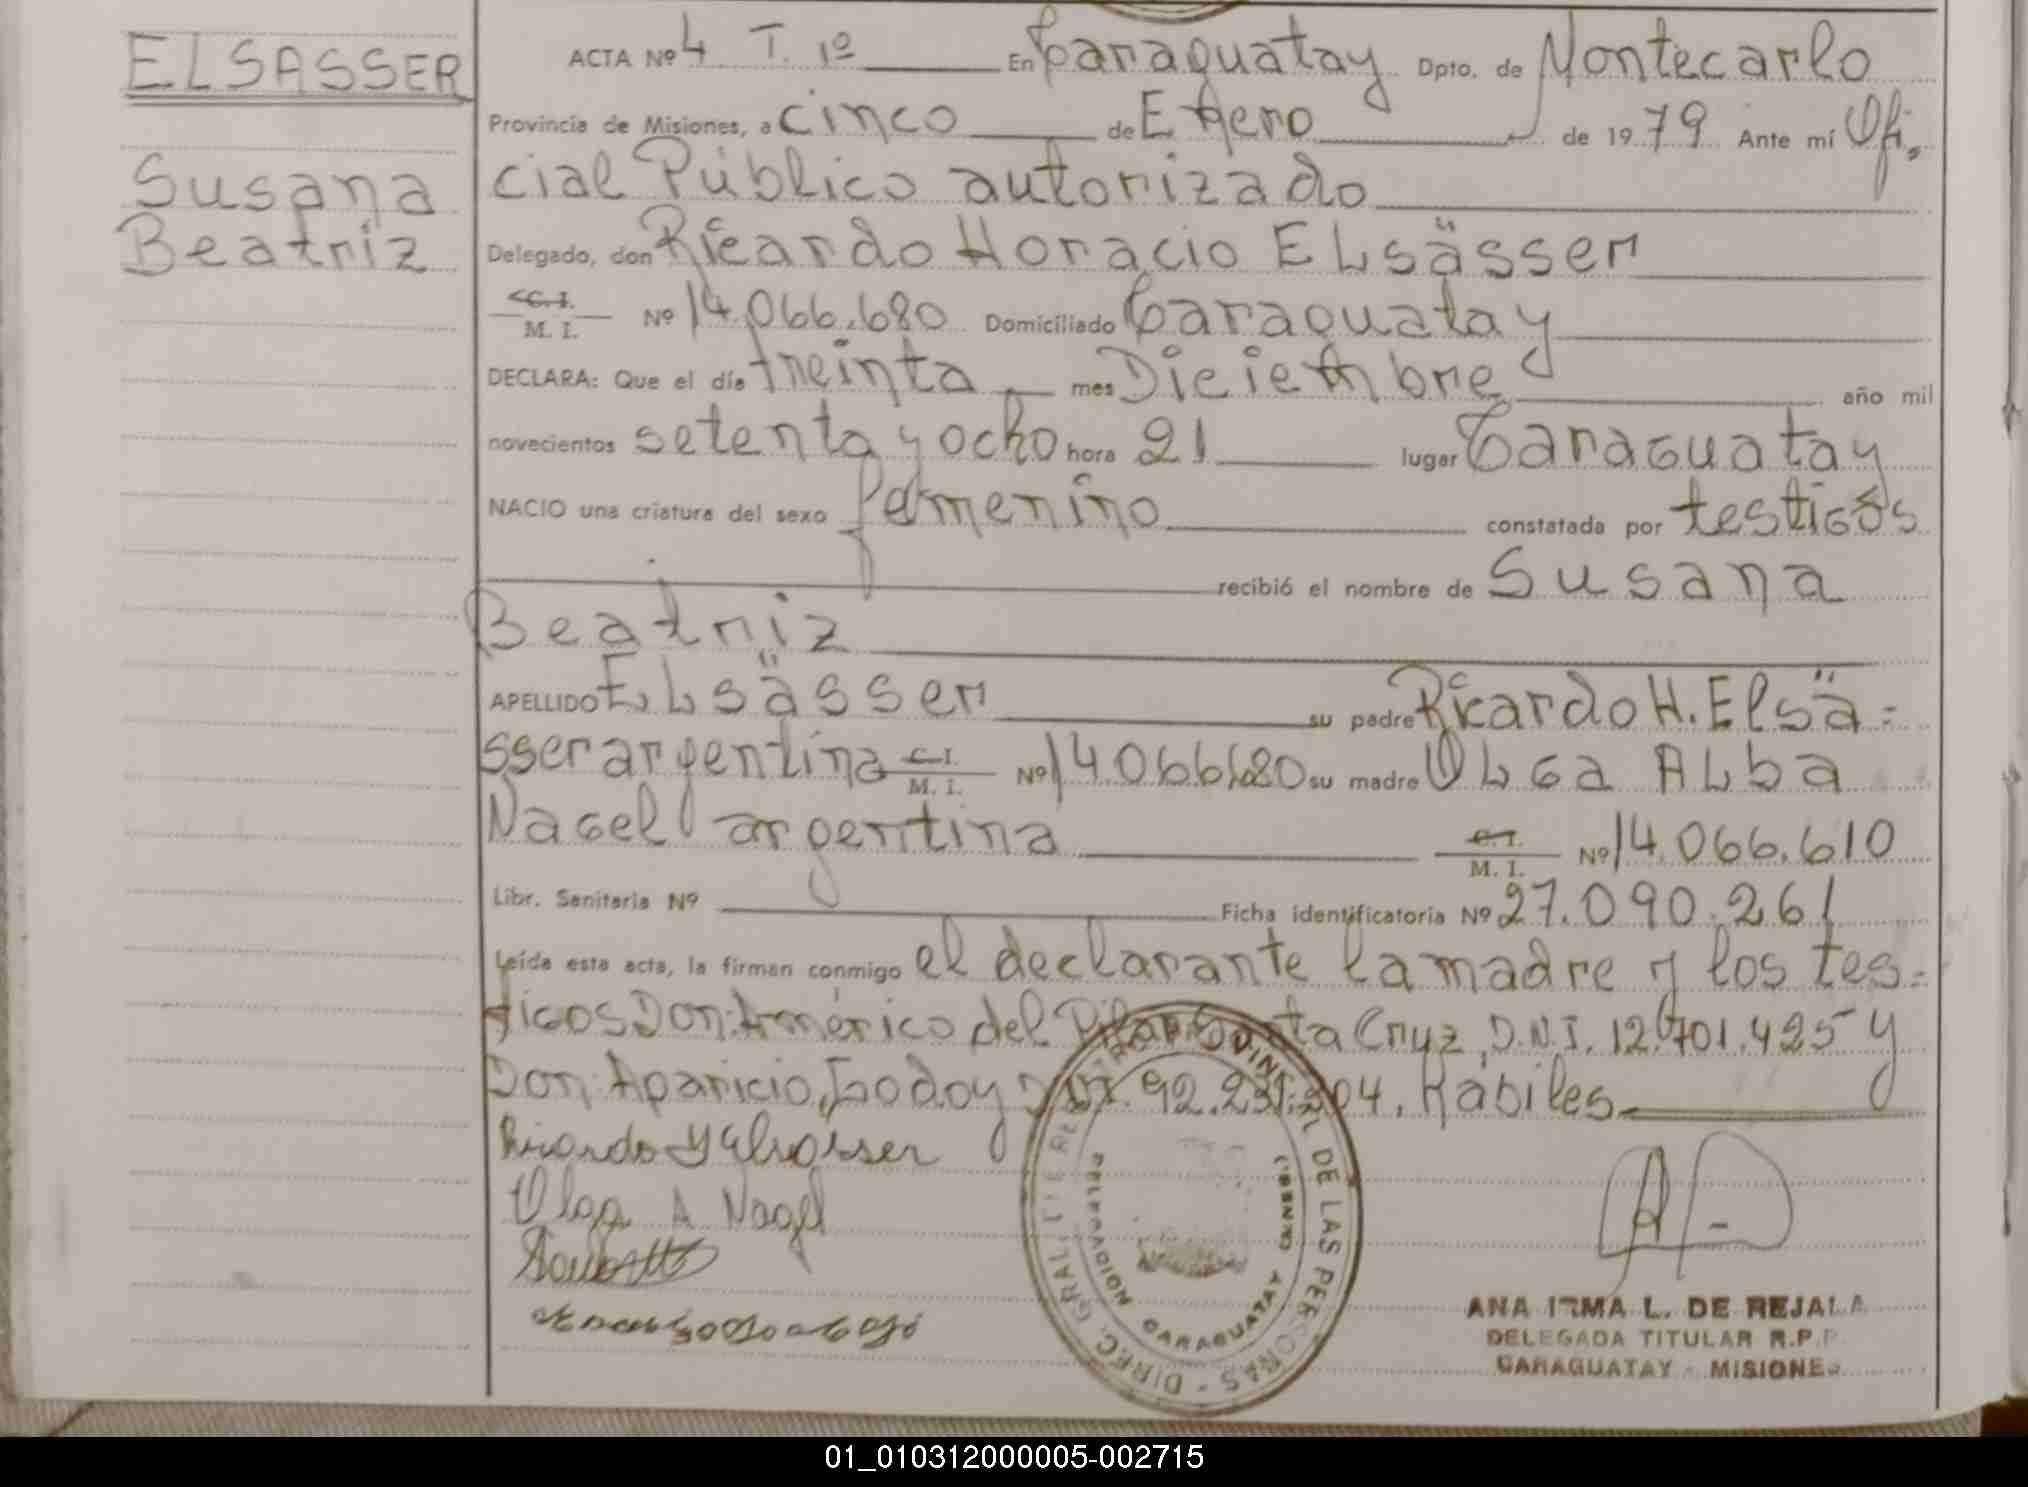 ELSASSER
Susana
Beatriz
ACTA Nº 4 T. 1º En Caraguatay Dpto. de Montecarlo
Provincia de Misiones, a cinco de Enero de 1979 Ante mí Ofi.
cial Público autorizado
Delegado, don Ricardo Horacio ELsässer
C. I.
M. I. Nº 14.066.680 Domiciliado Caraguatay
DECLARA: Que el día treinta mes Diciembre año mil
novecientos setenta y ocho hora 21 lugar Caraguatay
NACIO una criatura del sexo femenino constatada por testigos
recibió el nombre de Susana
Beatriz
APELLIDO ELsässer su padre Ricardo H. Elsä=
sser argentina C. I. M. I. Nº 14.066.680 su madre OLGa ALba
Nagel argentina C. I. M. I. Nº 14.066.610
Libr. Sanitaria Nº Ficha identificatoria Nº 27.090.261
Leída esta acta, la firman conmigo el declarante la madre y los tes=
tigos Don: Américo del Pilar Santa Cruz, D.N.I. 12.701.425 y
Don: Aparicio, Godoy 92.231.204. Hábiles
Ricardo H Elsasser
Olga A Nagel
DIREC. GRAL. DE LAS PERSONAS
DELEGACION CARAGUATAY
ANA IRMA L. DE REJALA
DELEGADA TITULAR R.P.P.
CARAGUATAY - MISIONES
01_010312000005-002715